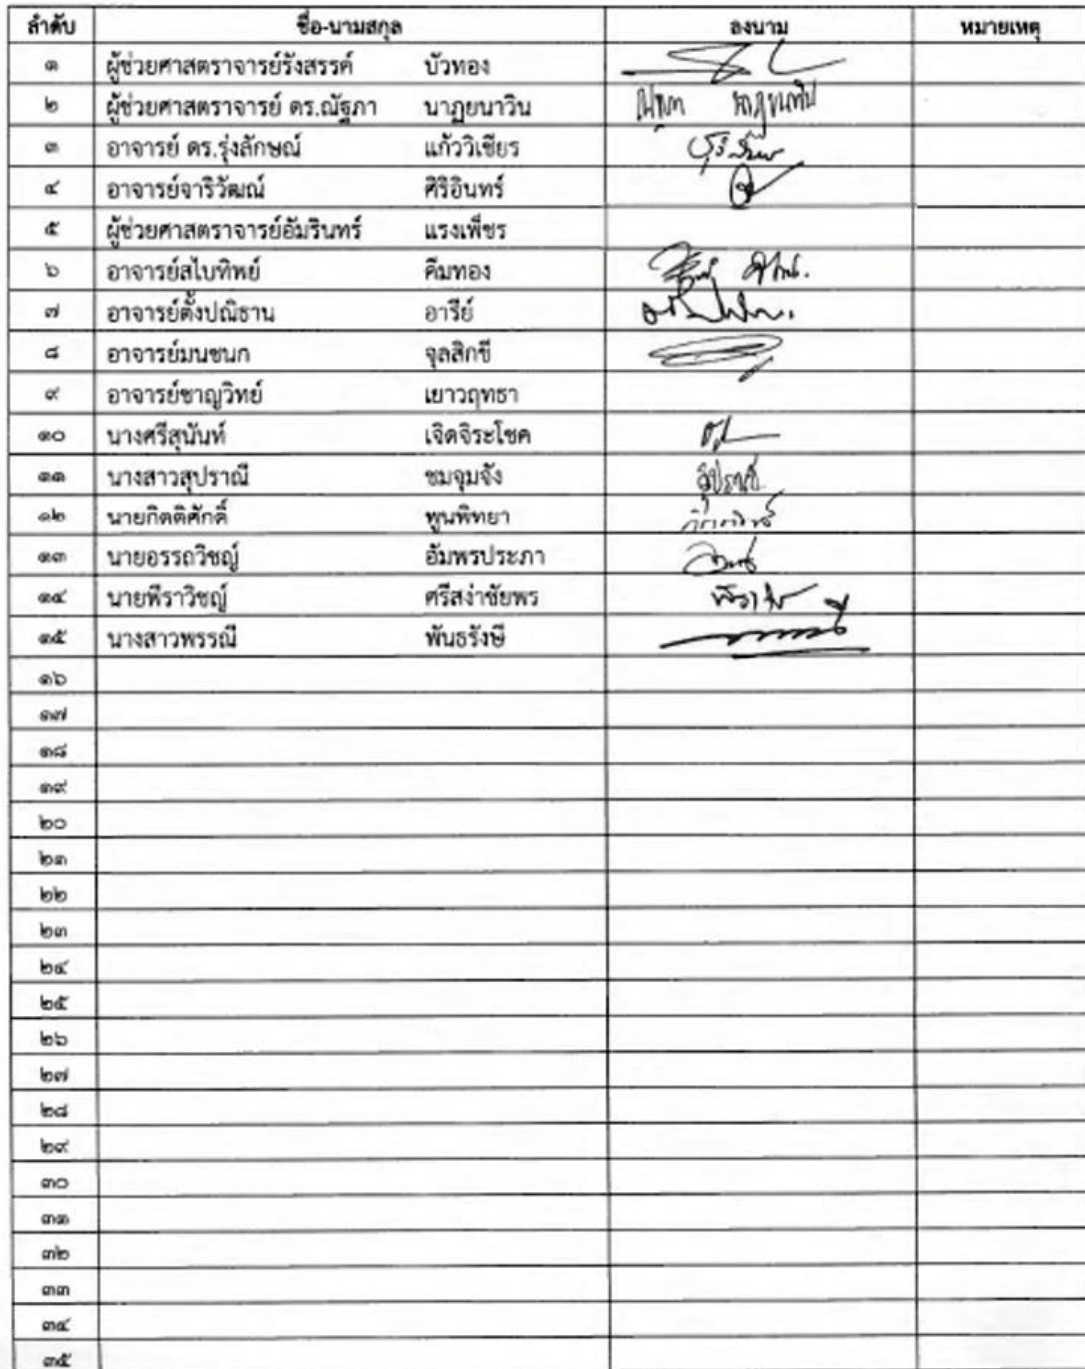 ลำดับ ชื่อ-นามสกุล ลงนาม หมายเหตุ
๑ ผู้ช่วยศาสตราจารย์รังสรรค์ บัวทอง
๒ ผู้ช่วยศาสตราจารย์ ดร.ณัฐภา นาฏยนาวิน ณัฐภา นาฏยนาวิน
๓ อาจารย์ ดร.รุ่งลักษณ์ แก้ววิเชียร
๔ อาจารย์จาริวัฒณ์ ศิริอินทร์
๕ ผู้ช่วยศาสตราจารย์อัมรินทร์ แรงเพ็ชร
๖ อาจารย์สไบทิพย์ คีมทอง
๗ อาจารย์ตั้งปณิธาน อารีย์
๘ อาจารย์มนชนก จุลสิกขี
๙ อาจารย์ชาญวิทย์ เยาวฤทธา
๑๐ นางศรีสุนันท์ เจิดจิระโชค
๑๑ นางสาวสุปราณี ชมจุมจัง สุปราณี
๑๒ นายกิตติศักดิ์ พูนพิทยา
๑๓ นายอรรถวิชญ์ อัมพรประภา
๑๔ นายพีราวิชญ์ ศรีสง่าชัยพร
๑๕ นางสาวพรรณี พันธรังษี
๑๖
๑๗
๑๘
๑๙
๒๐
๒๑
๒๒
๒๓
๒๔
๒๕
๒๖
๒๗
๒๘
๒๙
๓๐
๓๑
๓๒
๓๓
๓๔
๓๕